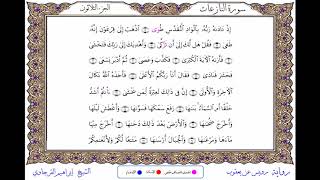 سورة النازعات
الجزء الثلاثون
إِذْ نَادَىٰهُ رَبُّهُۥ بِٱلْوَادِ ٱلْمُقَدَّسِ طُوًى ٱذْهَبْ إِلَىٰ فِرْعَوْنَ إِنَّهُۥ
طَغَىٰ فَقُلْ هَل لَّكَ إِلَىٰٓ أَن تَزَّكَّىٰ وَأَهْدِيَكَ إِلَىٰ رَبِّكَ فَتَخْشَىٰ
فَأَرَىٰهُ ٱلْءَايَةَ ٱلْكُبْرَىٰ فَكَذَّبَ وَعَصَىٰ ثُمَّ أَدْبَرَ يَسْعَىٰ
فَحَشَرَ فَنَادَىٰ فَقَالَ أَنَا۠ رَبُّكُمُ ٱلْأَعْلَىٰ فَأَخَذَهُ ٱللَّهُ نَكَالَ
ٱلْءَاخِرَةِ وَٱلْأُولَىٰٓ إِنَّ فِى ذَٰلِكَ لَعِبْرَةً لِّمَن يَخْشَىٰٓ ءَأَنتُمْ أَشَدُّ
خَلْقًا أَمِ ٱلسَّمَآءُ بَنَىٰهَا رَفَعَ سَمْكَهَا فَسَوَّىٰهَا وَأَغْطَشَ لَيْلَهَا
وَأَخْرَجَ ضُحَىٰهَا وَٱلْأَرْضَ بَعْدَ ذَٰلِكَ دَحَىٰهَآ أَخْرَجَ مِنْهَا
مَآءَهَا وَمَرْعَىٰهَا وَٱلْجِبَالَ أَرْسَىٰهَا مَتَٰعًا لَّكُمْ وَلِأَنْعَٰمِكُمْ
رواية رويس عن يعقوب
الشيخ إبراهيم الترجاوي